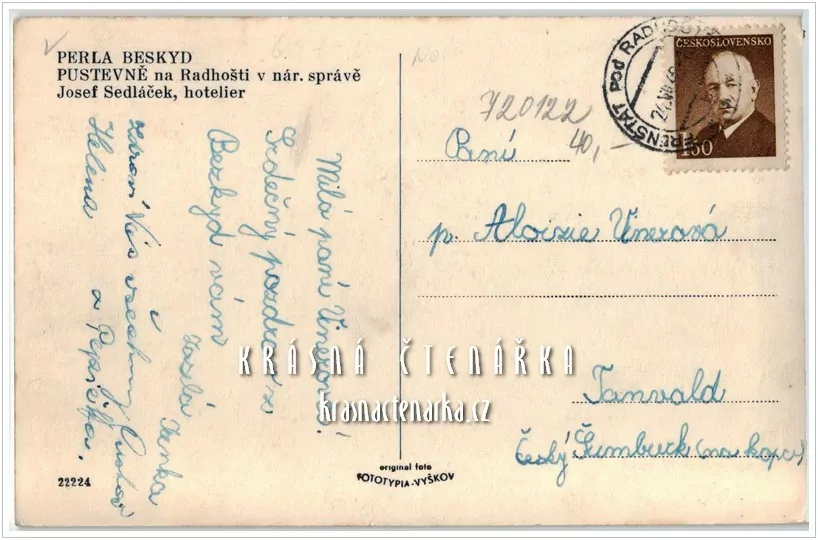 PERLA BESKYD
PUSTEVNĚ na Radhošti v nár. správě
Josef Sedláček, hotelier
Milá paní Unerová!
Srdečný pozdrav z
Bezkyd vám
zaslá Jenka
i
zdraví Vás všechny
Helena a Pepíčka.
22224
original foto
FOTOTYPIA-VYŠKOV
No.
720122
40,-
ČESKOSLOVENSKO
1·50
FRENŠTÁT POD RADHOŠTĚM
Paní
p. Aloizie Unerová
Tanvald
Český Šumburk (na kopci)
KRÁSNÁ ČTENÁŘKA
krasnactenarka.cz